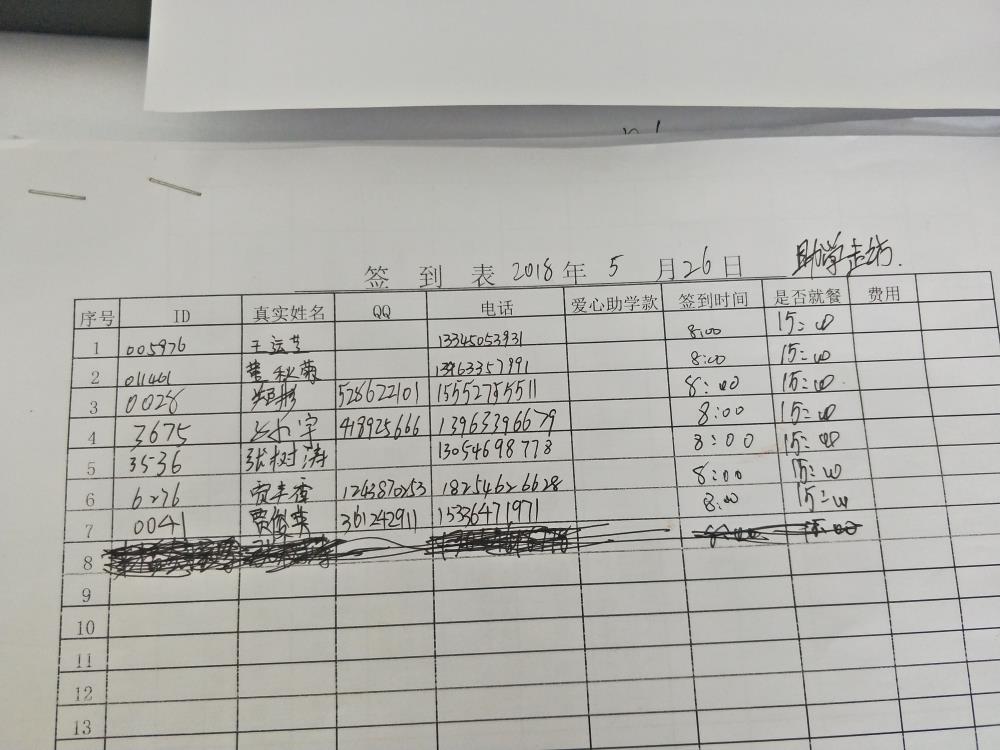 签 到 表 2018 年 5 月 26 日 助学走访.
序号 ID 真实姓名 QQ 电话 爱心助学款 签到时间 是否就餐 费用
1 005976 王运芝 13345053931 8:00 15:00
2 011461 秋菊 8:00 15:00
3 0028 528622101 15552755511 8:00 15:00
4 3675 小宇 418925666 13963396679 8:00 15:00
5 3536 张树涛 13054698778 8:00 15:00
6 6276 贾丰香 1263870253 18254626628 8:00 15:00
7 0041 贾俊英 361242911 15336471971 8:00 15:00
8
9
10
11
12
13